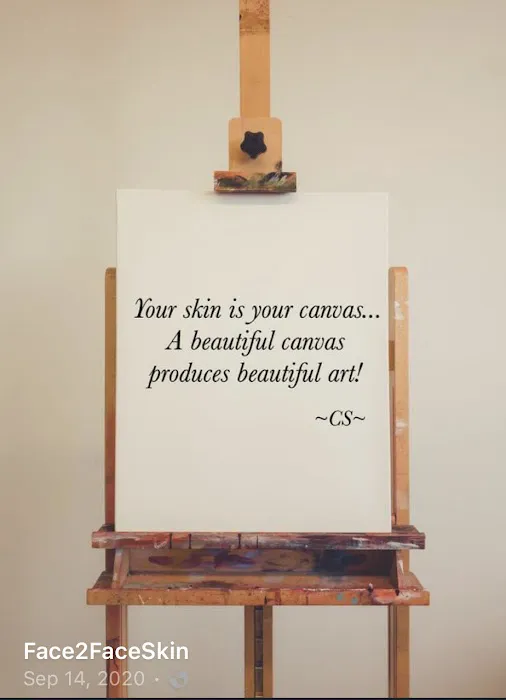 Your skin is your canvas...
A beautiful canvas
produces beautiful art!
~CS~
Face2FaceSkin
Sep 14, 2020 ·